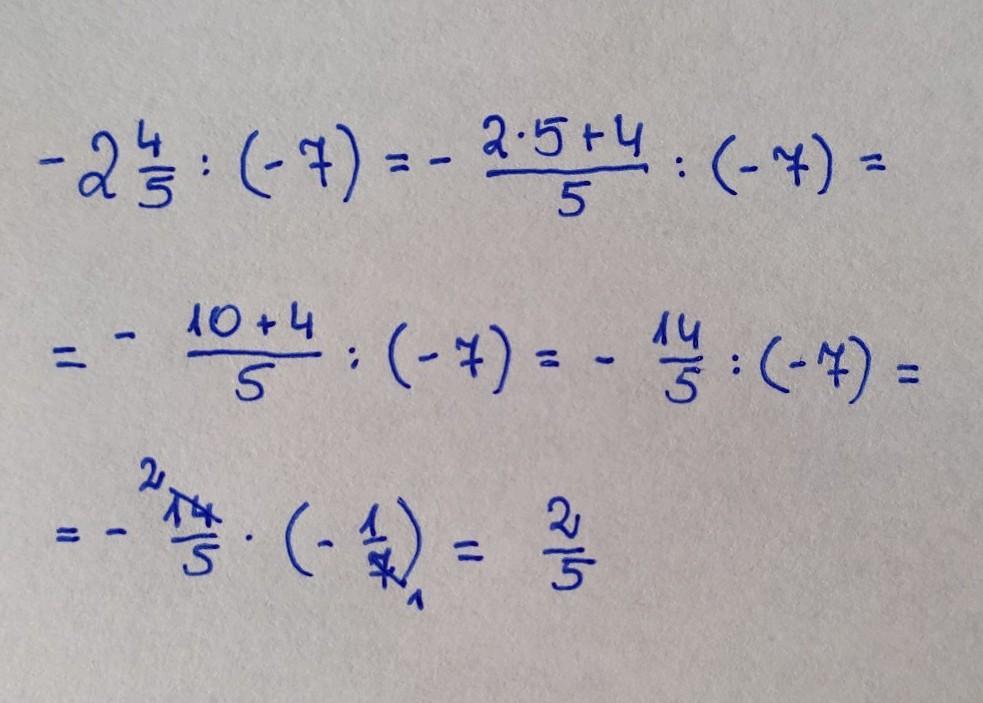 - 2 4/5 : (-7) = - (2·5+4)/5 : (-7) =
= - (10+4)/5 : (-7) = - 14/5 : (-7) =
= - 2 14/5 · (- 1/7) 1 = 2/5